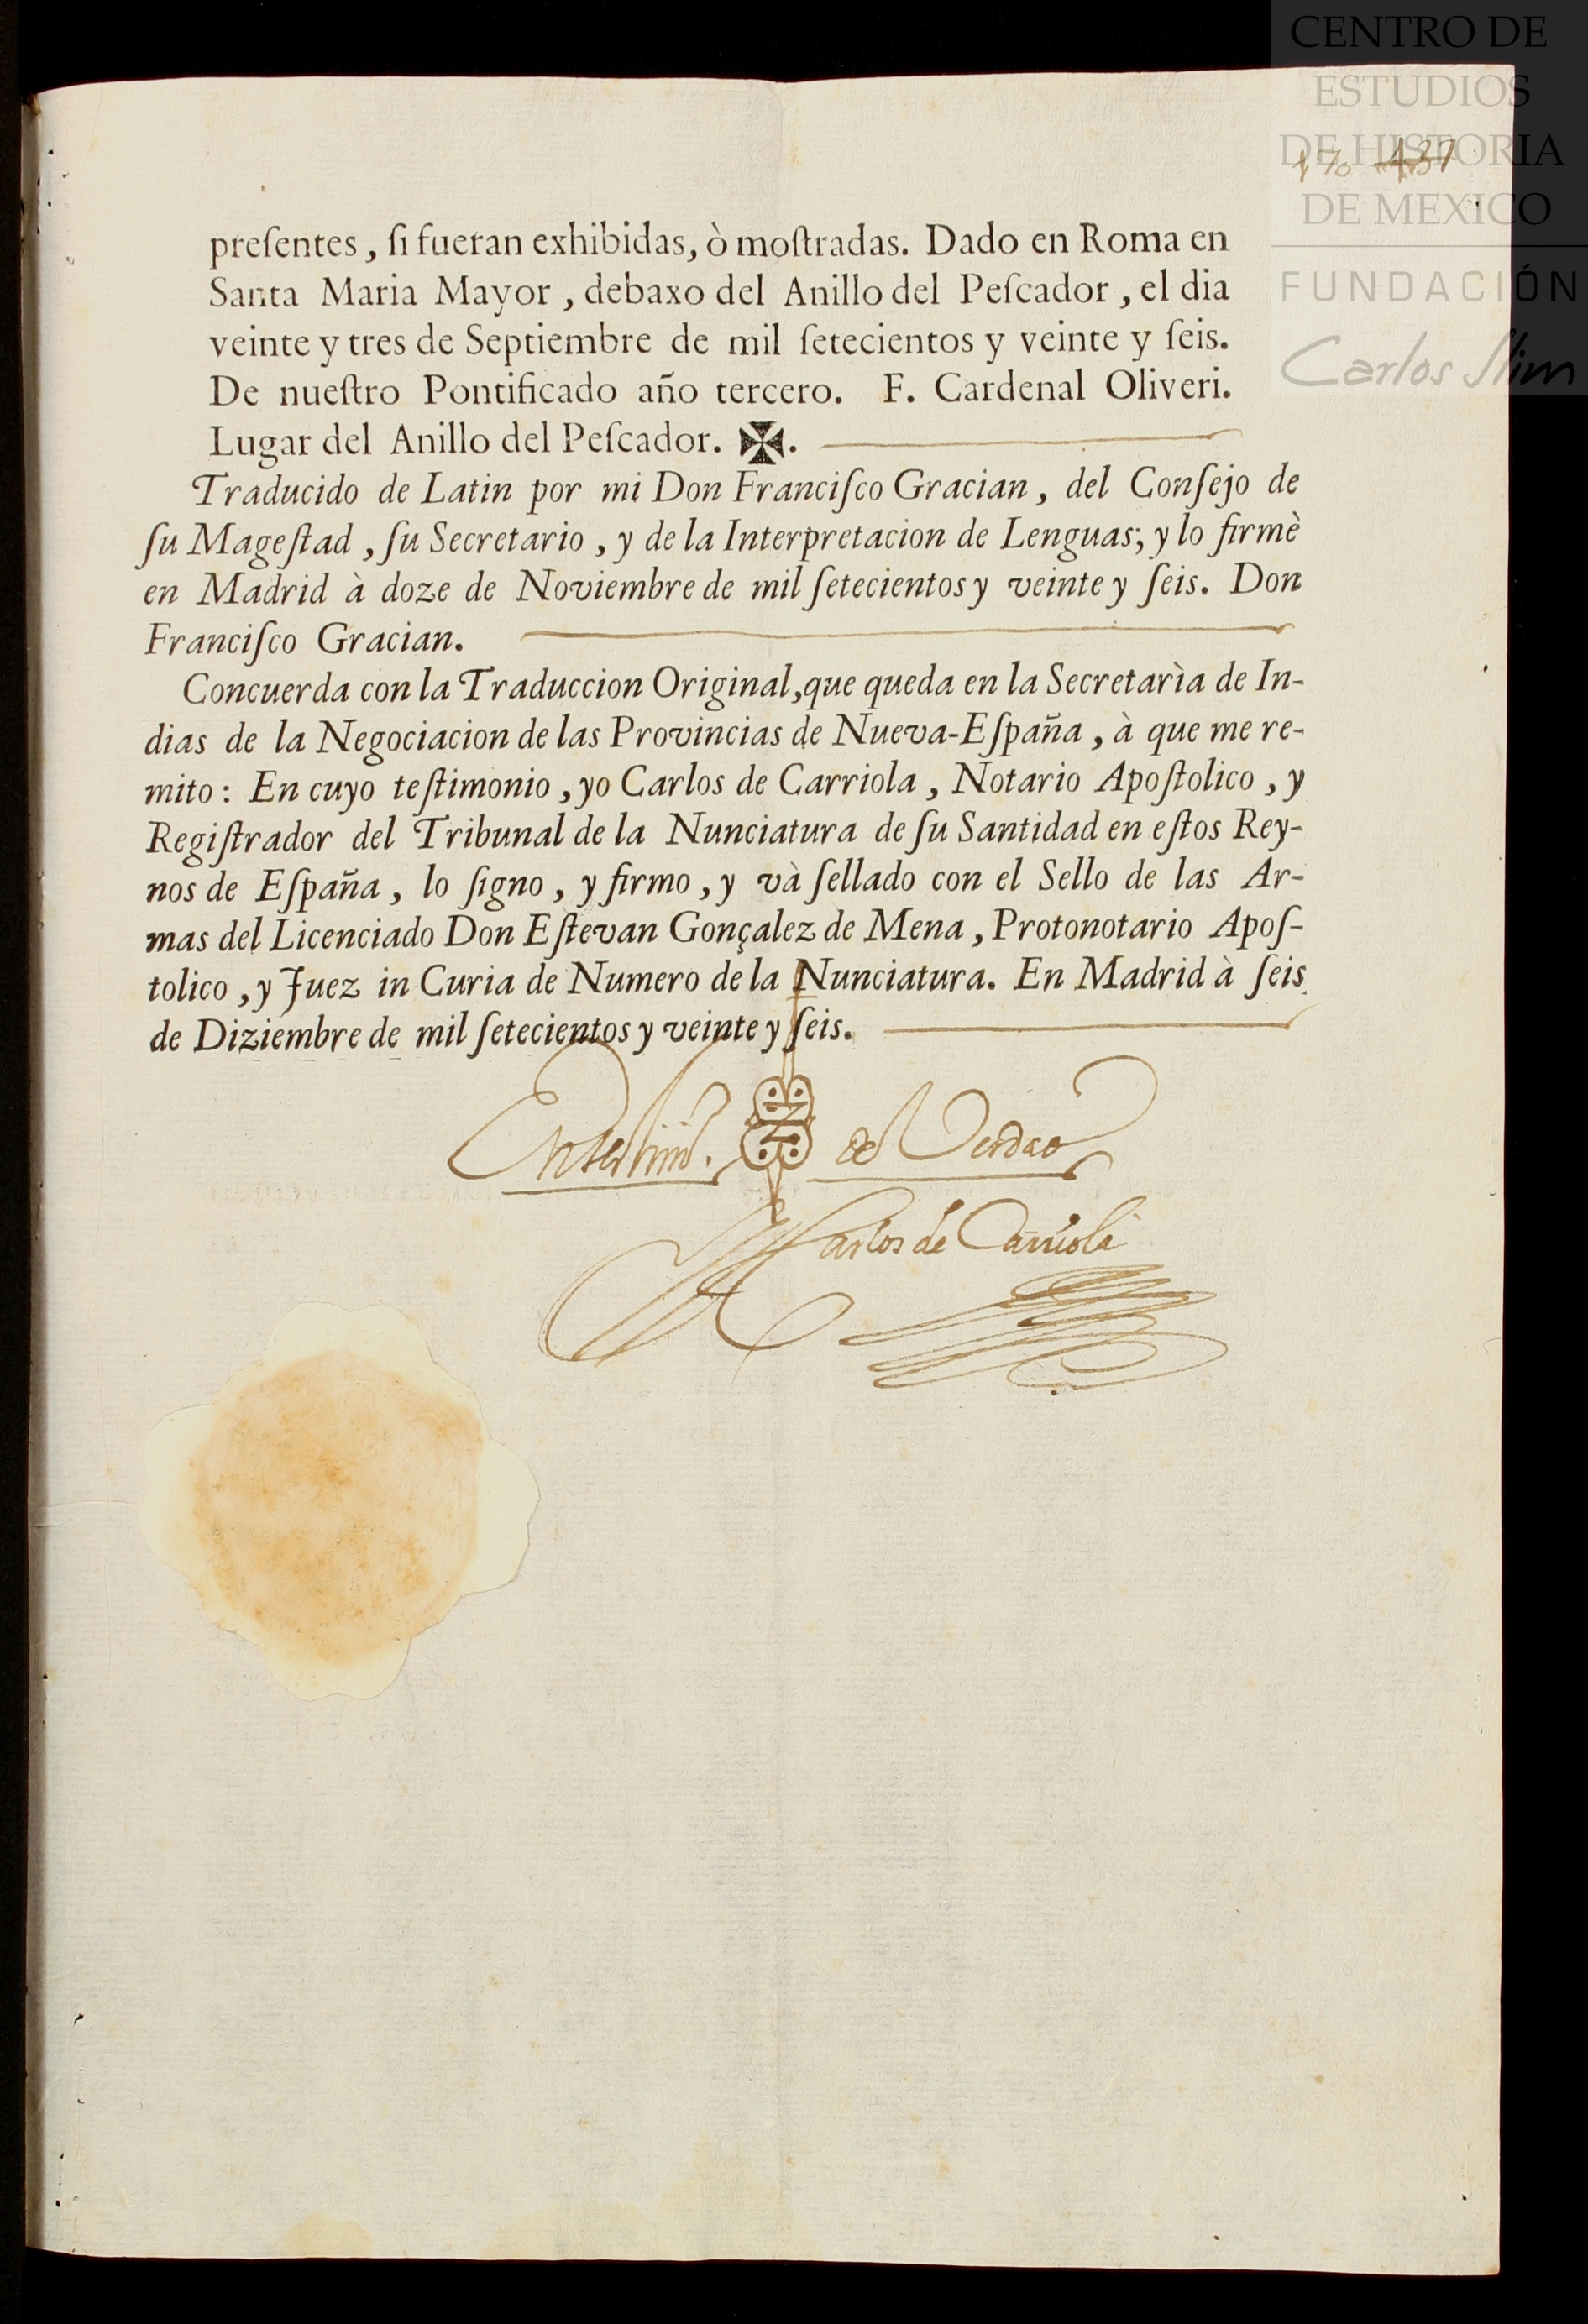 CENTRO DE
ESTUDIOS
DE HISTORIA
DE MEXICO
FUNDACIÓN
Carlos Slim
170 437
preſentes, ſi fueran exhibidas, ò moſtradas. Dado en Roma en
Santa Maria Mayor, debaxo del Anillo del Peſcador, el dia
veinte y tres de Septiembre de mil ſetecientos y veinte y ſeis.
De nueſtro Pontificado año tercero. F. Cardenal Oliveri.
Lugar del Anillo del Peſcador. ✠.
Traducido de Latin por mi Don Franciſco Gracian, del Conſejo de
ſu Mageſtad, ſu Secretario, y de la Interpretacion de Lenguas; y lo firmè
en Madrid à doze de Noviembre de mil ſetecientos y veinte y ſeis. Don
Franciſco Gracian.
Concuerda con la Traduccion Original, que queda en la Secretarìa de In-
dias de la Negociacion de las Provincias de Nueva-Eſpaña, à que me re-
mito: En cuyo teſtimonio, yo Carlos de Carriola, Notario Apoſtolico, y
Regiſtrador del Tribunal de la Nunciatura de ſu Santidad en eſtos Rey-
nos de Eſpaña, lo ſigno, y firmo, y và ſellado con el Sello de las Ar-
mas del Licenciado Don Eſtevan Gonçalez de Mena, Protonotario Apoſ-
tolico, y Juez in Curia de Numero de la Nunciatura. En Madrid à ſeis
de Diziembre de mil ſetecientos y veinte y ſeis.
En testimo. de Verdad
Carlos de Carriola